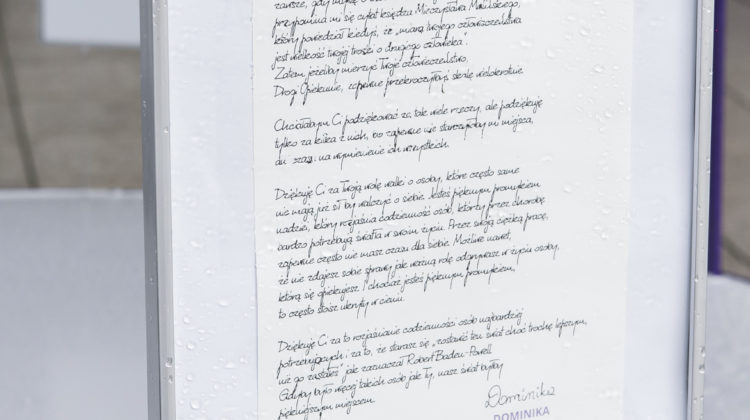 zawsze, gdy
przypomina mi się cytat księdza Mieczysława Malińskiego,
który powiedział kiedyś, że „miarą twojego człowieczeństwa
jest wielkość twojej troski o drugiego człowieka".
Zatem jeżeliby mierzyć Twoje człowieczeństwo,
Drogi Opiekunie, zapewne przekroczyłbyś skalę wielokrotnie.
Chciałabym Ci podziękować za tak wiele rzeczy, ale podziękuję
tylko za kilka z nich, bo zapewne nie starczyłoby mi miejsca,
ani czasu na wymienienie ich wszystkich.
Dziękuję Ci za Twoją wolę walki o osoby, które często same
nie mają już sił by walczyć o siebie. Jesteś pięknym promykiem
nadziei, który rozjaśnia codzienność osób, którzy przez chorobę
bardzo potrzebują światła w swoim życiu. Przez swoją ciężką pracę,
zapewne często nie masz czasu dla siebie. Możliwe nawet,
że nie zdajesz sobie sprawy jak ważną rolę odgrywasz w życiu osoby,
którą się opiekujesz. I chociaż jesteś pięknym promykiem,
to często stoisz ukryty w cieniu.
Dziękuję Ci za to rozjaśnianie codzienności osób najbardziej
potrzebujących i za to, że starasz się „zostawić ten świat choć trochę lepszym,
niż go zastałeś" jak zaznaczał Robert Baden-Powell.
Gdyby było więcej takich osób jak Ty, nasz świat byłby
piękniejszym miejscem.
Dominika
DOMINIKA